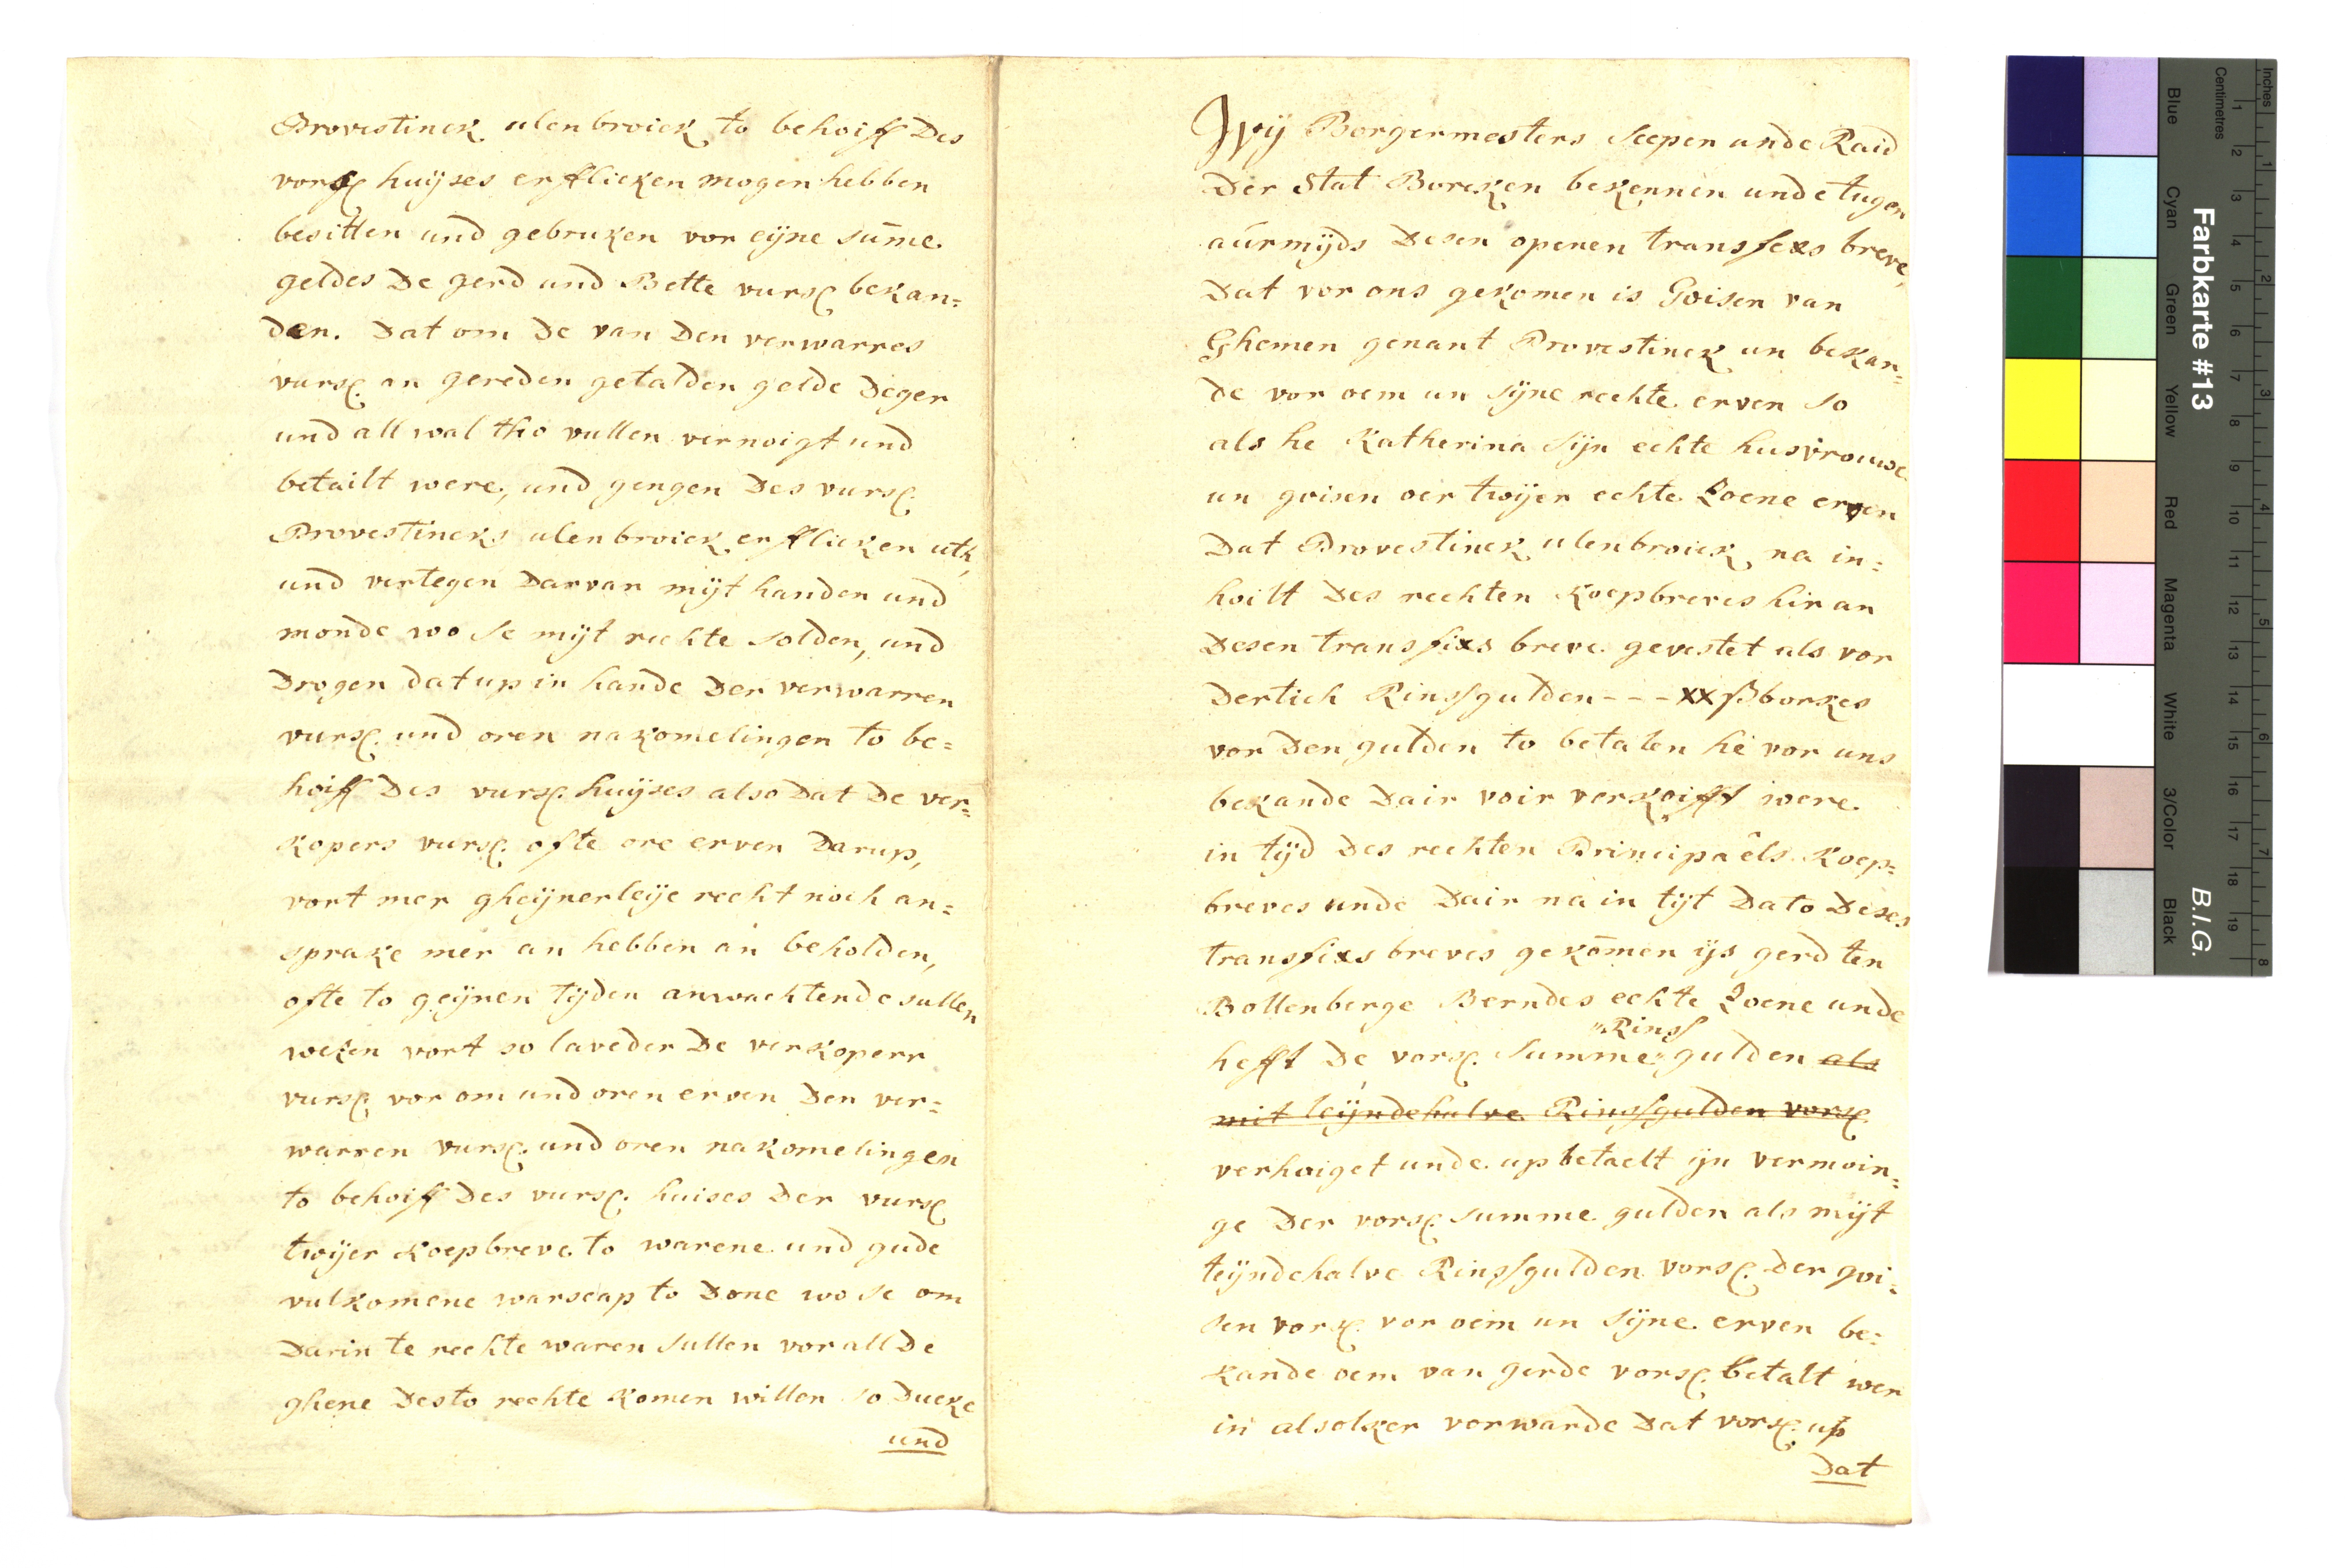 Provestinck ulenbroick to behoiff des
vorsc huijses erfflicken mogen hebben
besitten und gebruken vor eijne sum̄e
geldes de gerd und Bette vursc bekan=
den. dat om de van den verwarres
vursc. an gereden getalden gelde deger
und all wal tho vullen vernoigt und
betailt were, und gengen des vursc.
Provestincks ulenbroick erfflicken uth,
und vertegen darvan mijt handen und
monde wo se mijt rechte solden, und
drogen dat up in hande der verwarren
vursc. und oren nakomelingen to be=
hoiff des vursc. huijses also dat de ver=
kopers vursc. ofte ere erven darup,
vort mer gheijnerleije recht noch an=
sprake mer an hebben an beholden,
ofte to geijnen tijden anwachtende sullen
weken vort so laveder de verkoperr
vursc. vor om und oren erven den ver=
warren vursc. und oren nakomelingen
to behoiff des vursc. huises der vursc
twijer koepbreve to warene und gude
vulkomene warscap to done wo se om
darin te rechte waren sullen vor all de
ghene des to rechte komen willen so ducke
und
Wij Borgermesters Scepen unde Raid
der Stat Borcken bekennen unde tugen
aúrmijds desen openen transfexs breve,
dat vor ons gekomen is Goisen van
Ghemen genant Provestinck un bekan=
de vor oem un sijne rechte erven so
als he Katherina sijn echte husvrouwe
un goisen oer twijer echte Zoene erven
dat Provestinck ulenbroick na in=
hoilt des rechten koepbreves hir an
desen transfixs breve gevestet als vor
dertich Rinsfgulden - - - xx ß borkes
vor den gulden to betalen he vor uns
bekande dair voir verkoifft were
in tijd des rechten Principaêls koep=
breves unde dair na in tijt dato deses
transfixs breves gekōmen ijs gerd ten
Bollenberge Berndes echte Zoene unde
"Rinsf
hefft de vorsc. summe " gulden als
mit teijndehalve Rinsfgulden vorsc.
verhoiget unde up betaelt ijn vermoin=
ge der vorsc. summe gulden als mijt
teijndehalve Rinsfgulden vorsc. der goi=
sen vorsc. vor oem un sijne erven be=
kande oem van gerde vorsc. betalt wer
in alsolker vorwarde dat vorsc. up
dat
Farbkarte #13
B.I.G.
Inches
Centimetres
1 2 3 4 5 6 7 8 9 10 11 12 13 14 15 16 17 18 19
1 2 3 4 5 6 7 8
Blue
Cyan
Green
Yellow
Red
Magenta
White
3/Color
Black